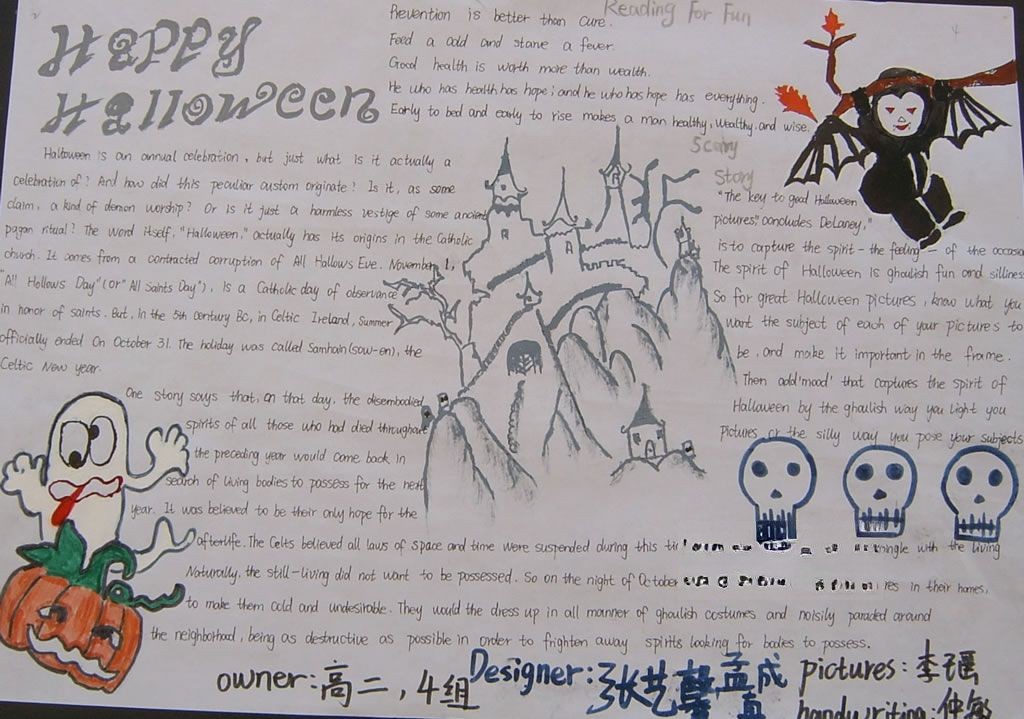 Happy
Halloween
Reading For Fun
Prevention is better than cure.
Feed a cold and starve a fever.
Good health is worth more than wealth.
He who has health has hope; and he who has hope has everything.
Early to bed and early to rise makes a man healthy, wealthy and wise.
Halloween is an annual celebration, but just what is it actually a
celebration of? And how did this peculiar custom originate? Is it, as some
claim, a kind of demon worship? Or is it just a harmless vestige of some ancient
pagan ritual? The word itself, "Halloween," actually has its origins in the Catholic
church. It comes from a contracted corruption of All Hallows Eve. November 1,
"All Hollows Day" (or "All Saints Day"), is a Catholic day of observance
in honor of saints. But, in the 5th century BC, in Celtic Ireland, summer
officially ended On October 31. The holiday was called Samhain (sow-en), the
Celtic New year.
One story says that, on that day, the desembodied
spirits of all those who had died throughout
the preceding year would come back in
search of living bodies to possess for the next
year. It was believed to be their only hope for the
afterlife. The Celts believed all laws of space and time were suspended during this mingle with the living
Naturally, the still-living did not want to be possessed. So on the night of October res in their homes,
to make them cold and undesirable. They would the dress up in all manner of ghoulish costumes and noisily paraded around
the neighborhood, being as destructive as possible in order to frighten away spirits looking for bodies to possess.
Scary
Story
"The key to good Halloween
pictures," concludes DeLaney,"
is to capture the spirit - the feeling - of the occasion
The spirit of Halloween is ghoulish fun and silliness
So for great Halloween pictures, know what you
want the subject of each of your pictures to
be, and make it important in the frame.
Then add 'mood' that captures the spirit of
Halloween by the ghoulish way you light you
pictures or the silly way you pose your subjects
owner: 高二, 4组
Designer: 张艺馨 孟成真
pictures: 李瑶
handwriting: 仲敏